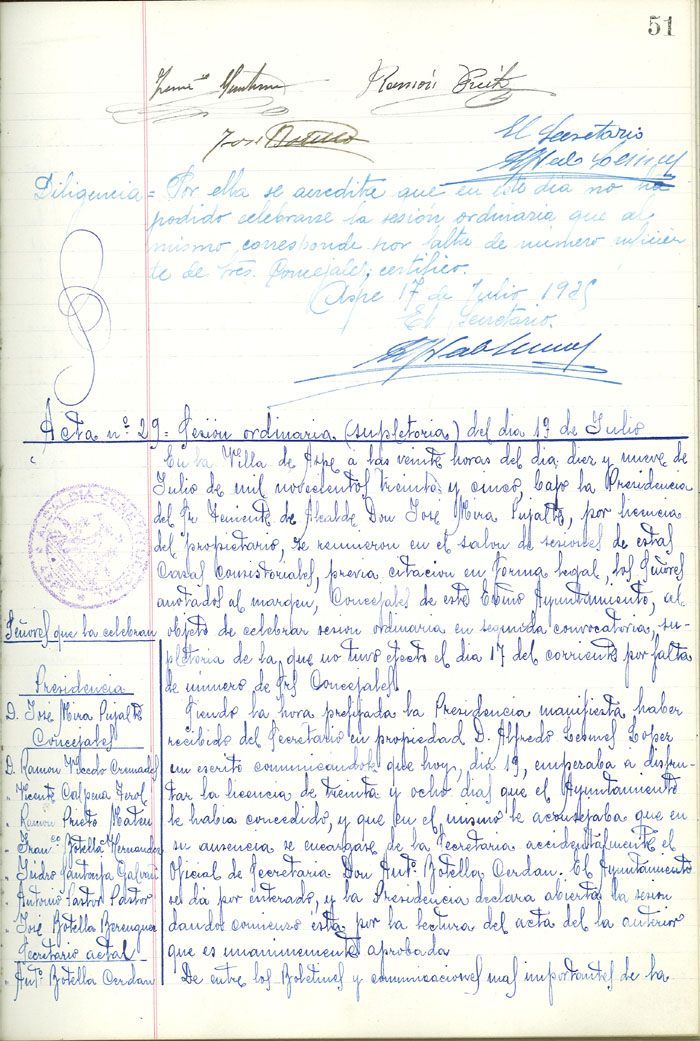 51
Ramón Prieto
José Botella
El Secretario
Diligencia = Por ella se acredita que en este dia no ha
podido celebrarse la sesión ordinaria que al
mismo corresponde por falta de número suficien
te de Sres. Concejales, certifico.
Aspe 17 de Julio 1935
El Secretario.
Acta nº 29 = Sesión ordinaria (supletoria) del dia 19 de Julio
En la Villa de Aspe á las veinte horas del dia diez y nueve de
Julio de mil novecientos treinta y cinco, bajo la Presidencia
del Sr. Teniente de Alcalde Don José Mira Pujalte, por licencia
del propietario, se reunieron en el salon de sesiones de estas
Casas Consistoriales, previa citacion en forma legal, los Señores
anotados al margen, Concejales de este Exmo Ayuntamiento, al
objeto de celebrar sesion ordinaria en segunda convocatoria, su-
pletoria de la que no tuvo efecto el dia 17 del corriente por falta
de número de Srs Concejales
Siendo la hora prefijada la Presidencia manifiesta haber
recibido del Secretario en propiedad D. Alfredo Lesmes Lopez
un escrito comunicandole que hoy, dia 19, empezaba a disfru-
tar la licencia de treinta y ocho dias que el Ayuntamiento
le habia concedido, y que en el mismo le aconsejaba que en
su ausencia se encargase de la Secretaria accidentalmente el
Oficial de Secretaria Don Antº Botella Cerdan. El Ayuntamiento
se dá por enterado, y la Presidencia declara abierta la sesion
dando comienzo ésta por la lectura del acta de la anterior
que es unanimemente aprobada
De entre los Boletines y comunicaciones mas importantes se ha
Señores que la celebran
Presidencia
D. José Mira Pujalte
Concejales
D. Ramon Vicedo Cremades
" Vicente Calpena Ferol
" Ramon Prieto Mateu
" Francº Botella Hernandez
" Isidro Santonja Galvañ
" Antonio Pastor Pastor
" José Botella Berenguer
Secretario actal
" Antº Botella Cerdan